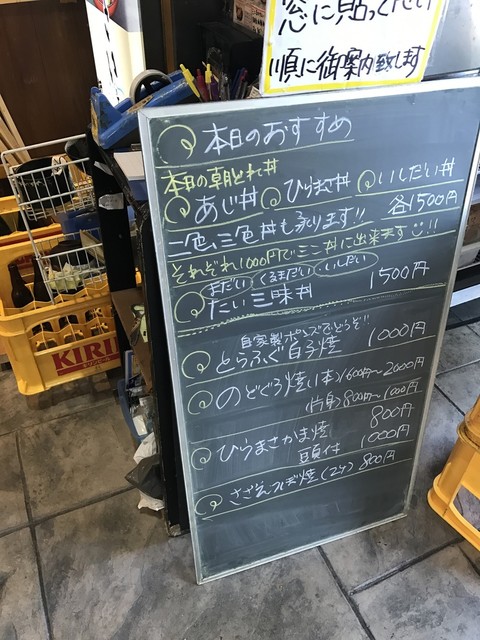 窓に貼ってください
順に御案内致します
本日のおすすめ
本日の朝とれ丼
あじ丼 ひらまさ丼 いしだい丼
二色、三色丼も承ります!! 各1500円
それぞれ1000円でミニ丼に出来ます!!
まだい くろまだい いしだい
たい三昧丼 1500円
自家製ポン酢でどうぞ!!
とらふぐ白子焼 1000円
のどぐろ焼(1本)1600円〜2000円
(片身)800円〜1000円
ひらまさかま焼 800円
頭付 1000円
さざえつぼ焼(2ケ)800円
KIRIN